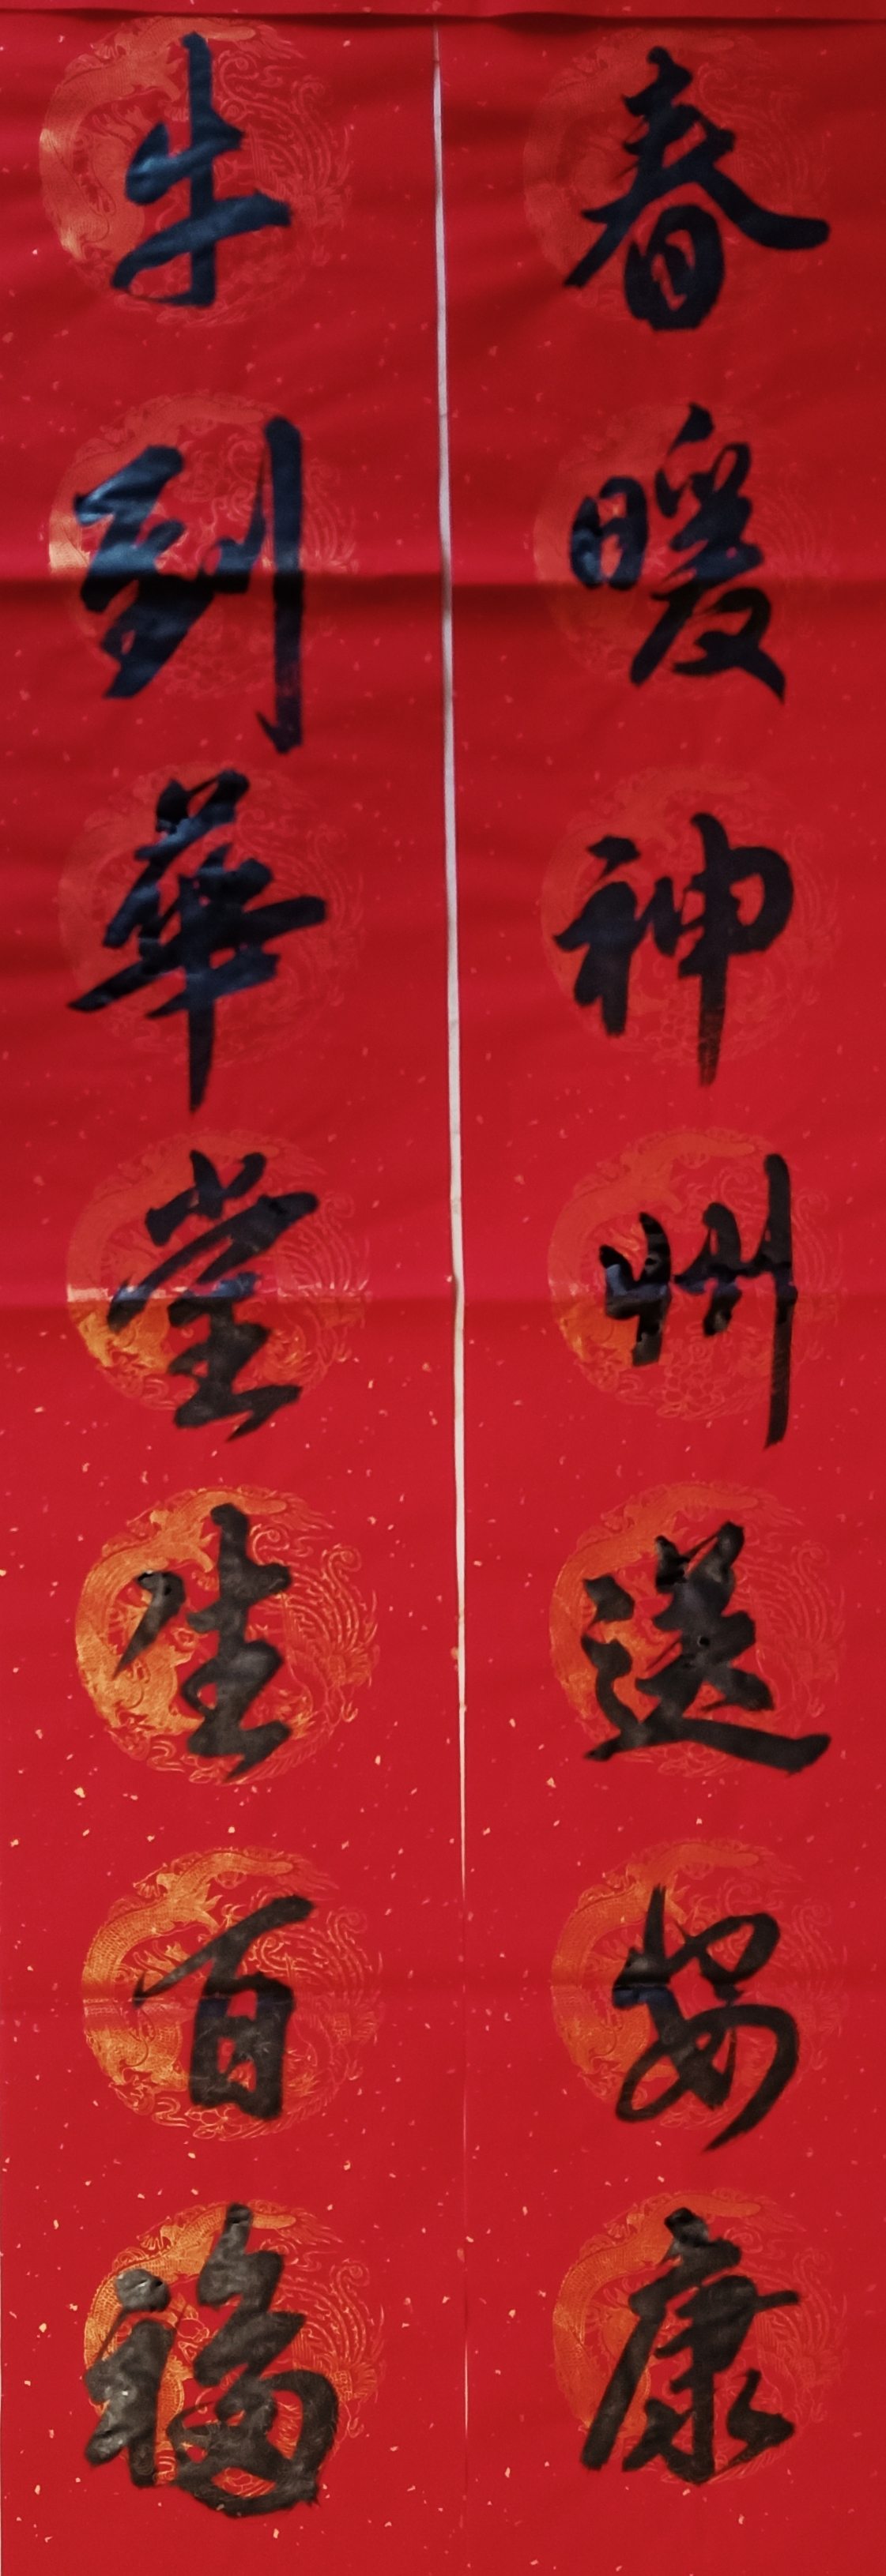 春暖神州送安康
牛到華堂生百福